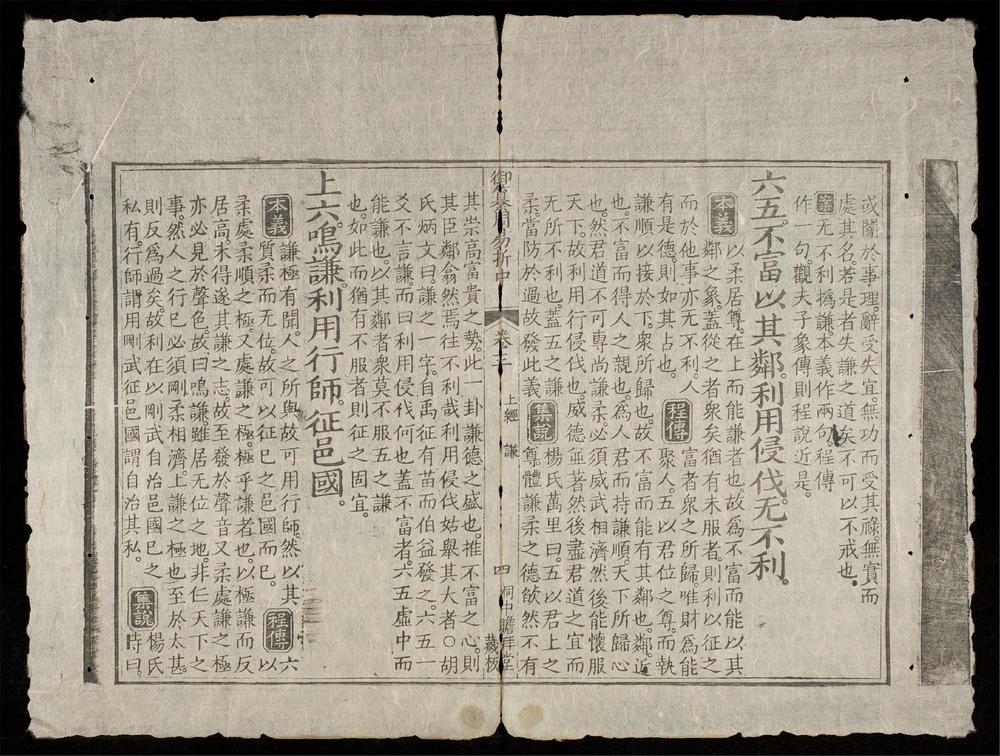 或闇於事理辭受失宜無功而受其祿無實而
處其名若是者失謙之道矣不可以不戒也
案无不利撝謙本義作兩句程傳
作一句觀夫子象傳則程說近是
六五不富以其鄰利用侵伐无不利
本義 以柔居尊在上而能謙者也故爲不富而能以其
鄰之象蓋從之者衆矣猶有未服者則利以征之
而於他事亦无不利人
有是德則如其占也 程傳 富者衆之所歸唯財爲能
聚人五以君位之尊而執
謙順以接於下衆所歸也故不富而能有其鄰也鄰近
也不富而得人之親也爲人君而持謙順天下所歸心
也然君道不可專尚謙柔必須威武相濟然後能懷服
天下故利用行侵伐也威德並著然後盡君道之宜而
无所不利也蓋五之謙
柔當防於過故發此義 集說 楊氏萬里曰五以君上之
尊體謙柔之德欿然不有
御纂周易折中 卷三 上經 謙 四 同中瞻拜堂藏板
其崇高富貴之勢此一卦謙德之盛也推不富之心則
其臣鄰翕然焉往不利哉利用侵伐姑舉其大者○胡
氏炳文曰謙之一字自禹征有苗而伯益發之六五一
爻不言謙而曰利用侵伐何也蓋不富者六五虛中而
能謙也以其鄰者衆莫不服五之謙
也如此而猶有不服者則征之固宜
上六鳴謙利用行師征邑國
本義 謙極有聞人之所與故可用行師然以其
質柔而无位故可以征已之邑國而已 程傳 六以
柔處柔順之極又處謙之極極乎謙者也以極謙而反
居高未得遂其謙之志故至發於聲音又柔處謙之極
亦必見於聲色故曰鳴謙雖居无位之地非任天下之
事然人之行已必須剛柔相濟上謙之極也至於太甚
則反爲過矣故利在以剛武自治邑國已之
私有行師謂用剛武征邑國謂自治其私 集說 楊氏
時曰